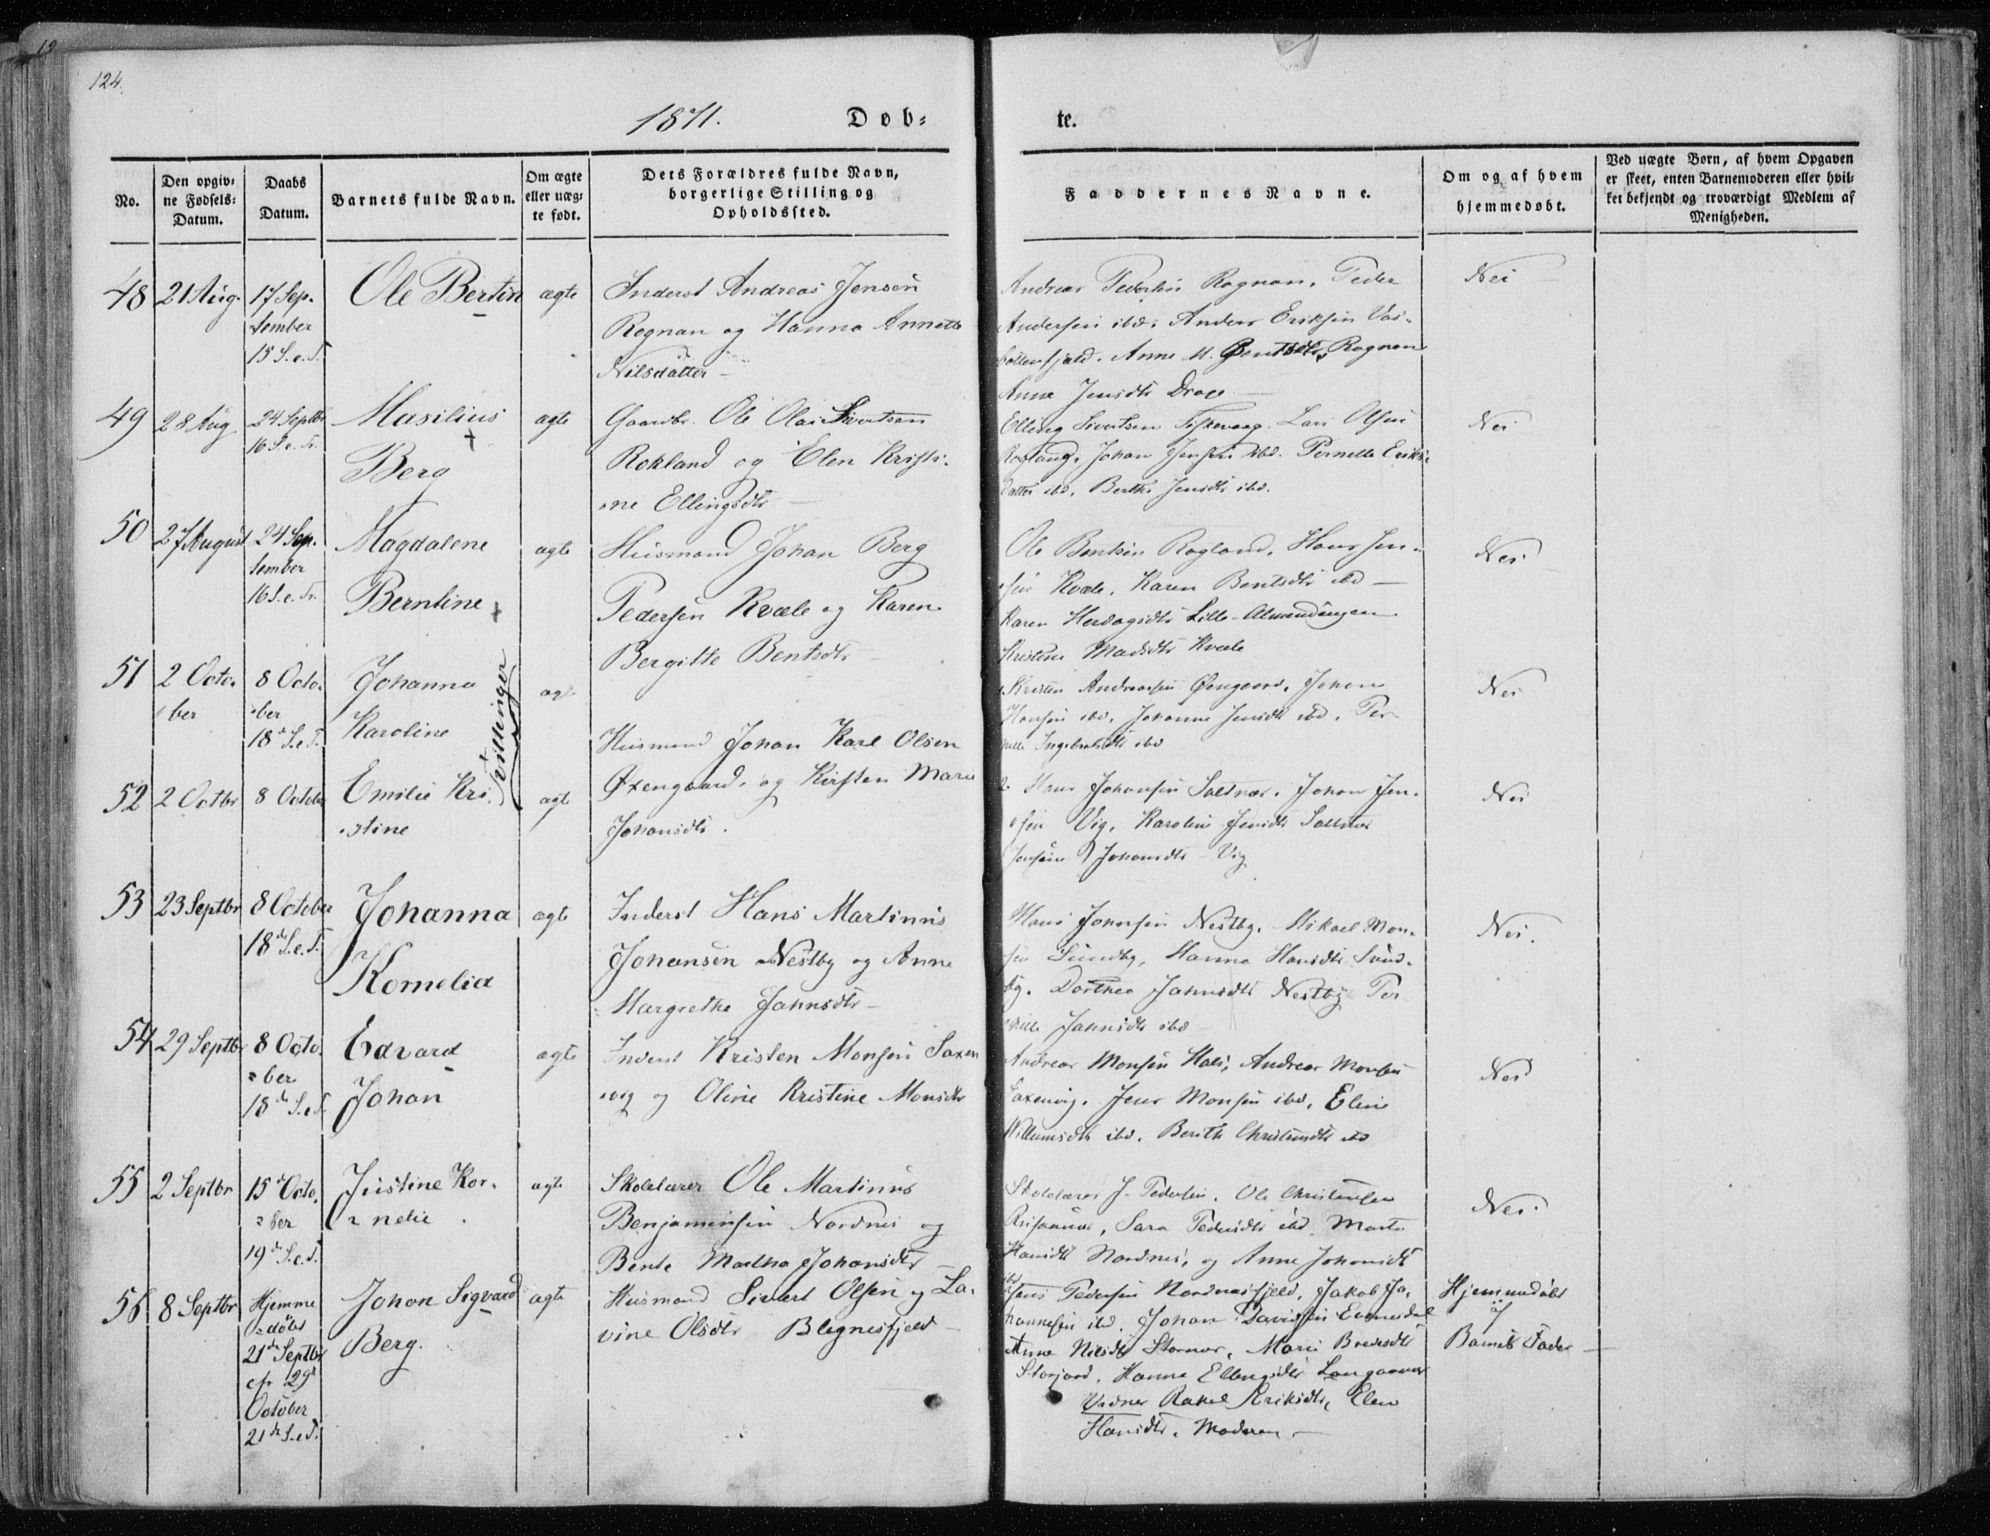 124.
1871.
Døb-
te.
No.
Den opgiv-
ne Fødsels-
Datum.
Daabs
Datum.
Barnets fulde Navn.
Om ægte
eller uæg-
te født.
Dets Forældres fulde Navn,
borgerlige Stilling og
Opholdssted.
Faddernes Navne.
Om og af hvem
hjemmedøbt.
Ved uægte Børn, af hvem Opgaven
er skeet, enten Barnemoderen eller hvil-
ket bekjendt og troværdigt Medlem af
Menigheden.
48
21 Aug.
17 Sep-
tember
15 S. e. T.
Ole Bertin
ægte
Inderst Andreas Jensen
Rognan og Hanna Annette
Nilsdatter
Andreas Pedersen Rognan, Peder
Andersen ibd. Anders Eriksen Vas-
Anne M. Bentsdtr Rognan
Anne Jensdtr Drage
Nei
49
28 Aug
24 Septbr
16 S. e. Tr.
Masilius
Berg
ægte
Gaardbr. Ole Olai Sivertsen
Rokland og Elen Kristi-
ne Ellingsdtr
Elling Sivertsen Fiskevaag. Lars Olsen
Rogland, Johan Jensen ibd. Pernelle Eriks-
datter ibd, Berthe Jensdtr ibd.
Nei
50
27 August
24 Sep-
tember
16 S. e. Tr.
Magdalene
Berntine
ægte
Husmand Johan Berg
Pedersen Kvæle og Karen
Bergitte Bentsdtr
Ole Bentsen Rogland, Hans Jen-
sen Kvæle, Karen Bentsdtr ibd
Karen Herdagsdtr Lille-Almendingen
Kristine Madsdtr Kvæle
Nei
51
2 Octo-
ber
8 Octo-
ber
18de S. e. T.
Johanna
Karoline
Tvillinger
ægte
Husmand Johan Karl Olsen
Øxengaard, og Kirsten Marie
Johansdtr.
Kristen Andreassen Øxngaard, Johan
Hansen ibd, Johanne Jensdtr ibd, Per-
nille Ingebrigtsdtr ibd
Nei
52
2 Octbr
8 October
Emilie Kri-
stine
ægte
Hans Johansen Saltnæs, Johan Jen-
sen Vig, Karoline Jensdtr Saltnæs
Johansdtr Vig
Nei
53
23 Septbr
8 October
18de S. e. T.
Johanna
Kornelia
ægte
Inderst Hans Martinus
Johansen Nestby og Anne
Margrethe Jahnsdtr
Hans Johnsen Nestby, Mikael Mon-
sen Sundby, Hanna Hansdtr Sund-
by. Dorthea Jahnsdtr Nestby Per-
nille Jahnsdtr ibd
Nei.
54
29 Septbr
8 Octo-
ber
18de S. e. T.
Edvard
Johan
ægte
Inderst Kristen Monsen Saxen
vig og Oline Kristine Monsdtr
Andreas Monsen Hals, Andreas Monsen
Saxenvig, Jens Monsen ibd, Eline
Willumsdtr ibd. Berith Christensdtr ibd
Nei
55
2 Septbr
15de Octo-
ber
19de S. e. T.
Justine Kor-
nelie
ægte
Skolelærer Ole Martinus
Benjaminsen Nordnes og
Bente Martha Johansdtr
Skolelærer J. Pedersen, Ole Christensen
Sara Pedersdtr ibd Marta
Hansdtr Nordnes, og Anne Johansdtr
ibd
Nei.
56
8 Septbr
Hjemme
døbt
21de Septbr
cfr 29de
October
21de S. e. T.
Johan Sigvard
Berg.
ægte
Husmand Sivert Olsen og La-
vine Olsdtr Blegnesfjeld
Jens Pedersen Nordnesfjeld, Jakob Jo-
hannesen ibd, Johan Davidsen Evenesdal
Anne Nilsdtr Stornæs, Marie Bredesdtr
Storjord, Hanne Ellingsdtr Langaanæs
Vidner Rakel Eriksdtr, Elen
Hansdtr, Moderen
Hjemmedøbt
af
Barnets Fader